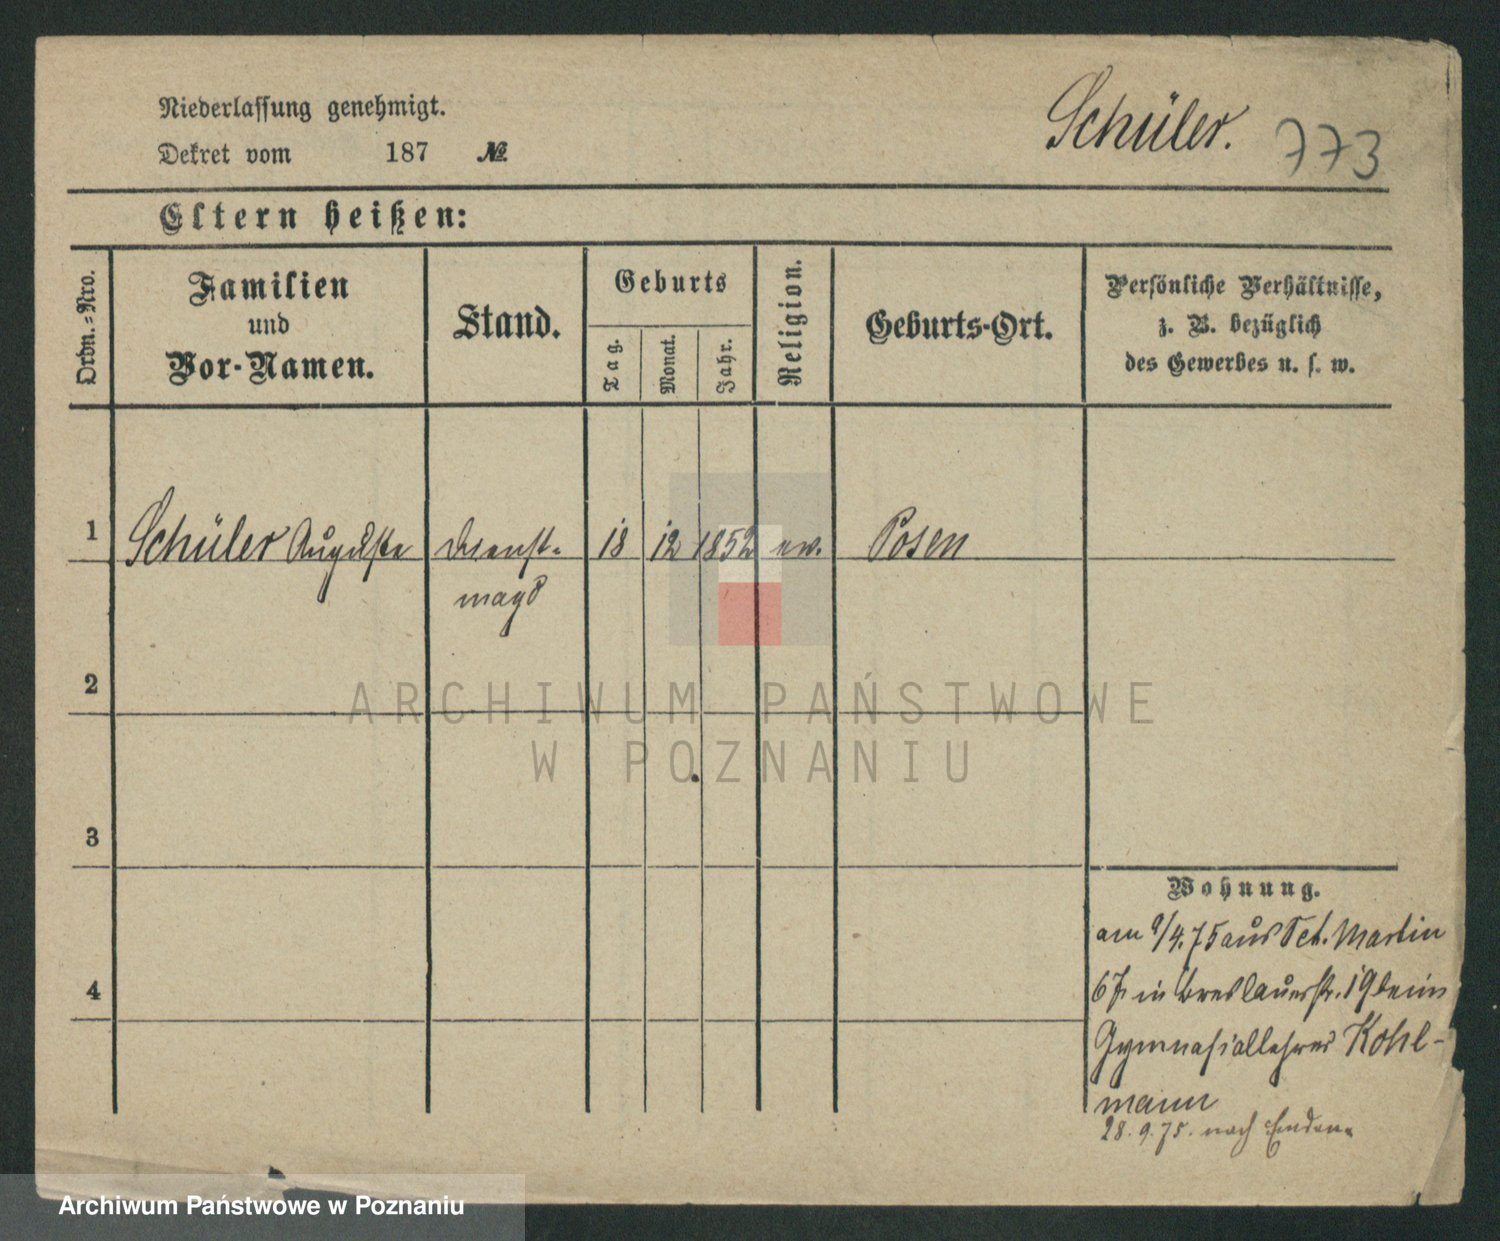 Niederlassung genehmigt.
Schüler. 773
Dekret vom 187 №
Eltern heißen:
Ordn.-Nro.
Familien
und
Vor-Namen.
Stand.
Geburts
Tag.
Monat.
Jahr.
Religion.
Geburts-Ort.
Persönliche Verhältnisse,
z. B. bezüglich
des Gewerbes u. s. w.
1 Schüler Auguste Dienst- 18 12 1852 ev. Posen
magd
2
3
4
Wohnung.
am 9/4.75 aus Sct. Martin
67 in Breslauerstr. 19 beim
Gymnasiallehrer Kohl-
mann
28.9.75. nach
ARCHIWUM PAŃSTWOWE
W POZNANIU
Archiwum Państwowe w Poznaniu